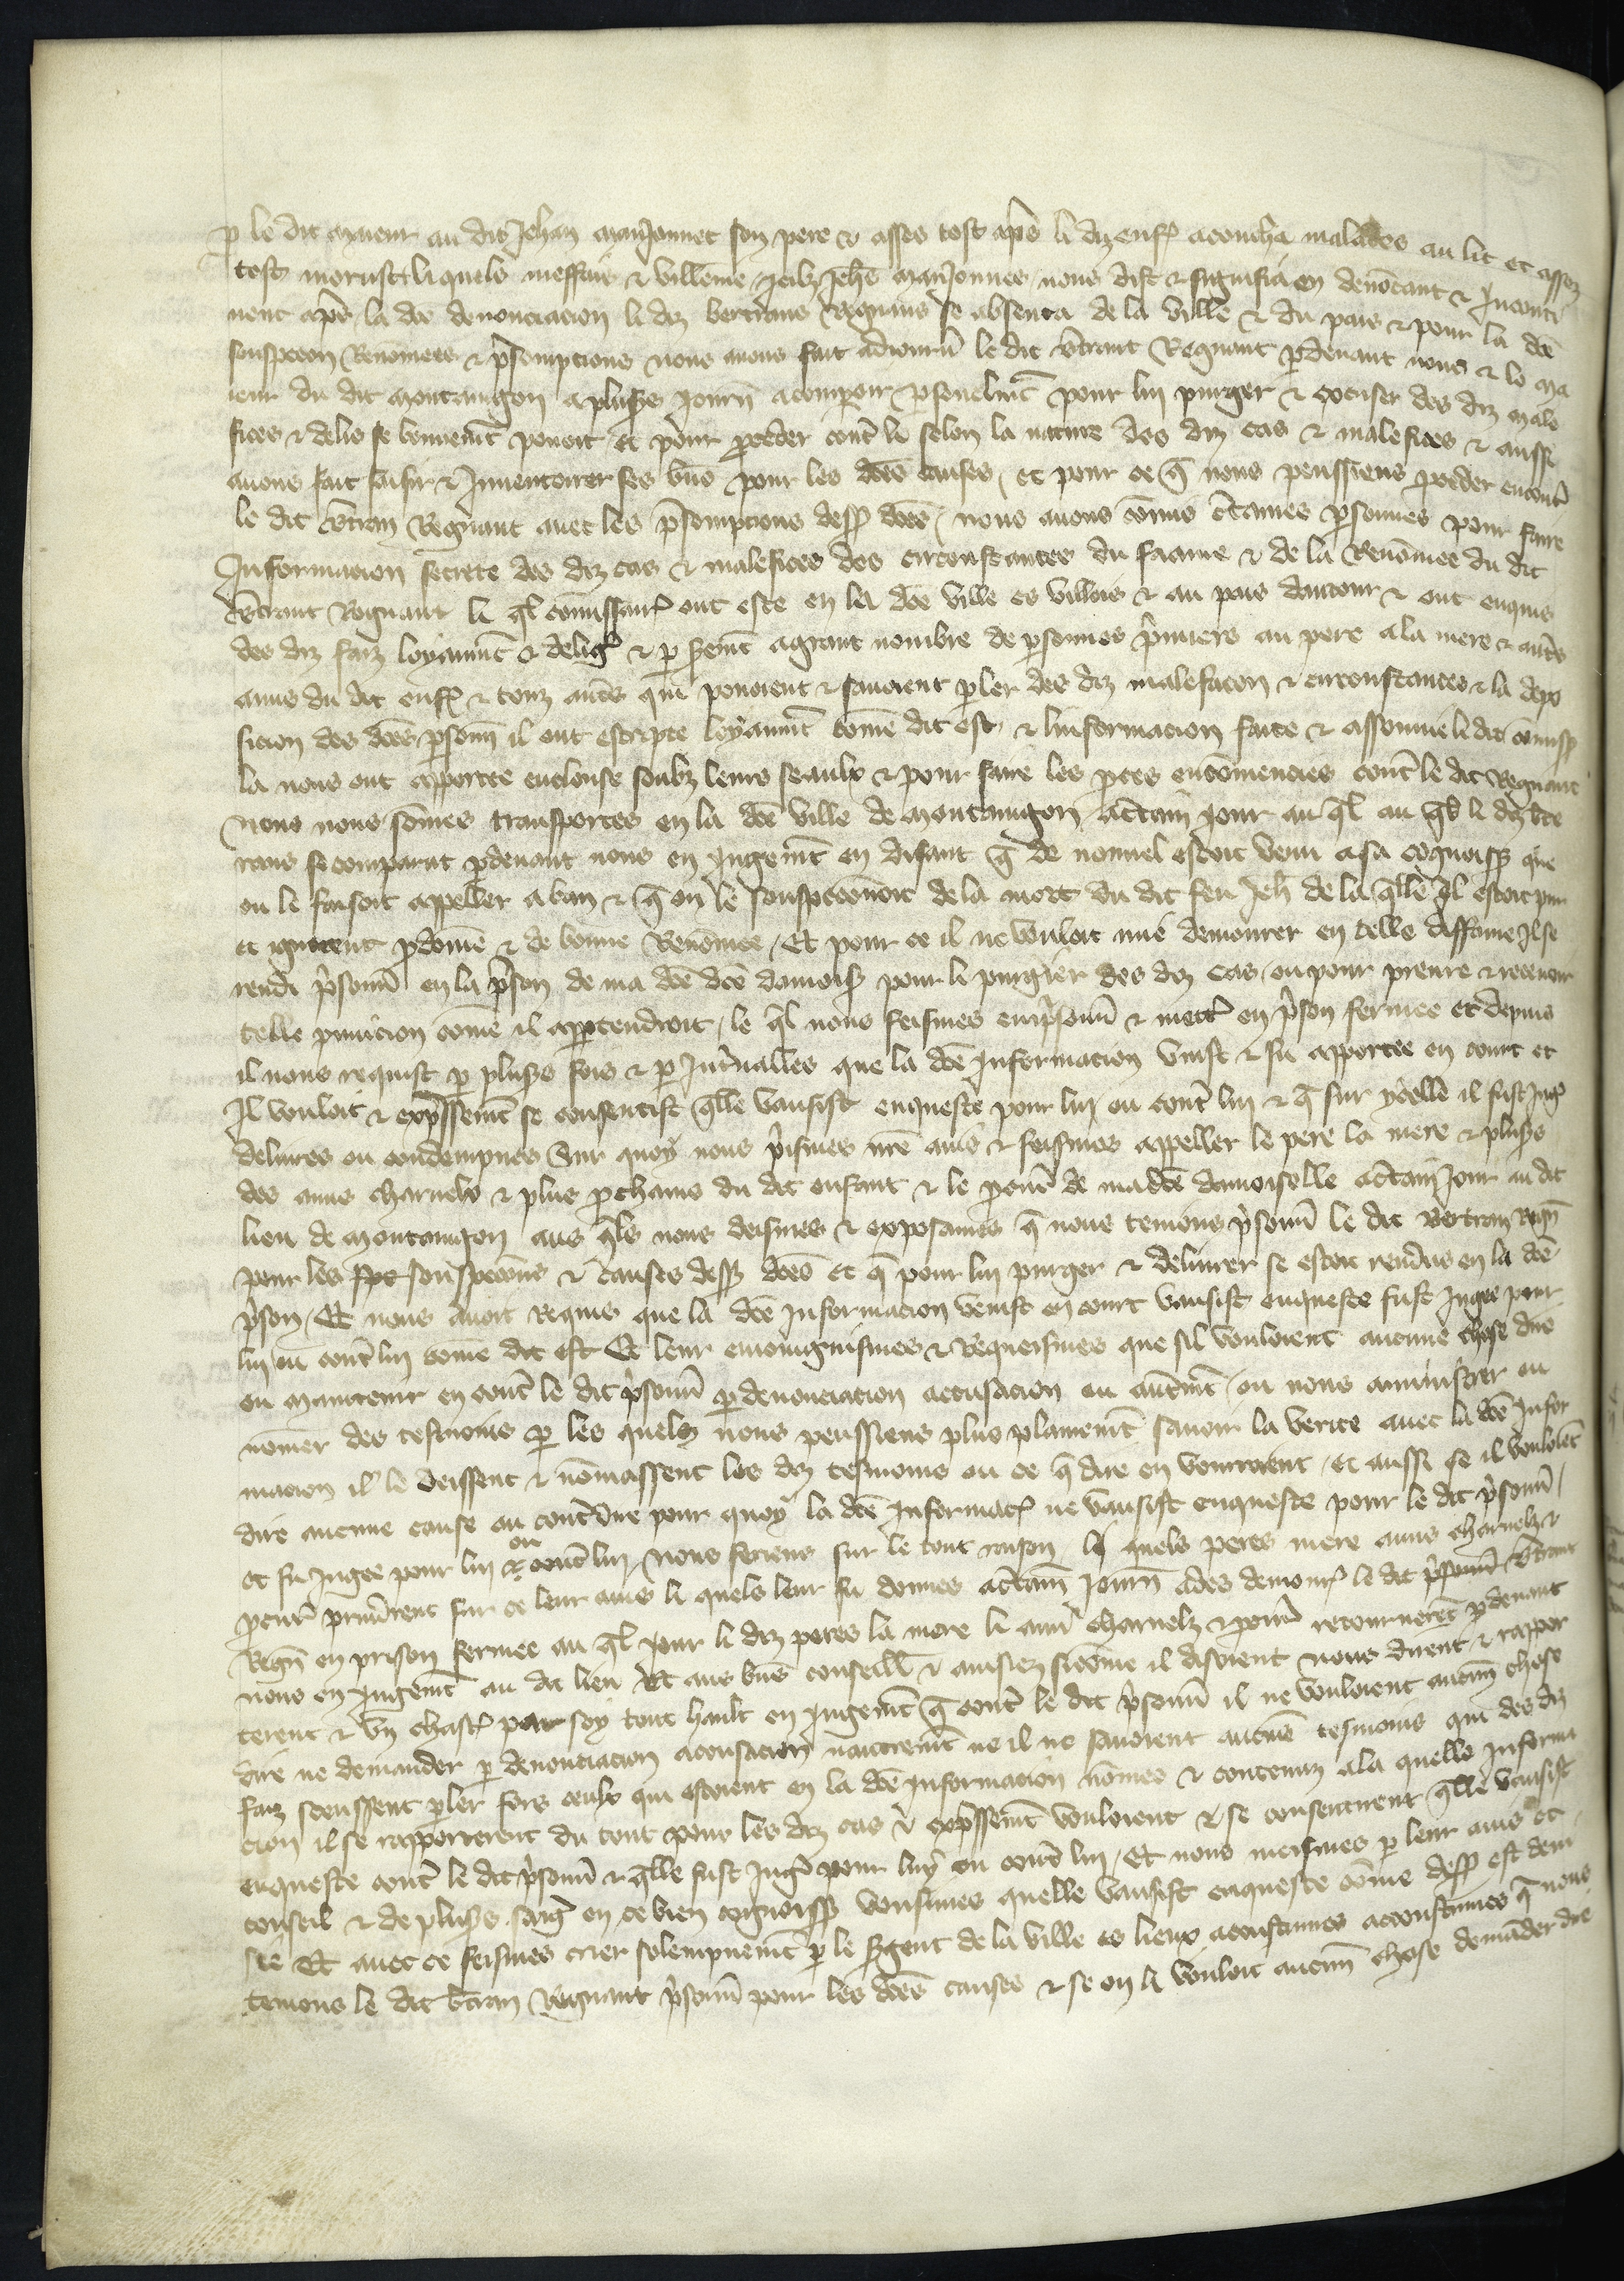 p le dit mueur au dit Jehan manJonnet son pere & asses tost ap̃s li diz enf acoucha malades au lit et assez
tost morust li quels meffais & villeme Jeilz Jeh̃s manJonnes nous dist & signifia en denõcant & Inconti
nent ap̃s la dc̃e denonciacion li diz bertrans Regnans se absenta de la ville & du pais & pour la dc̃e
souspecon Renomees & p̃sompcions nous avons fait adiourn̄ le dit b̃trant Regnant p̱devant nous & le ma
ieur du dit montangon a pluss̃s Journ̄ a comparoir p̱sonelm̃t pour lui purger & excuser des diz male
fices & delis se bonnem̃t pouoit et pour p̱ceder cont̃ li selon la nature des diz cas & malefices & aussi
avons fait saisir & Inventoirer ses biens pour les dc̃es causes, et pour ce q̃ nous peussiens p̱ceder encont̃
le dit b̃tran Regnant avec les p̃sompcions dess̃ dc̃es, nous avons com̃is c̃taines p̱sonnes pour faire
Informacion secrete des diz cas & malefices des circonstances du faame & de la Renõmee du dit
b̃trant Regnant li q̃l com̃issair̃ ont este en la dc̃e ville es villois & au pais dautour & ont enquis
des diz faiz loyaum̃t & delig̃ & p̱ serem̃t a grant nombre de p̱sonnes p̃miers au pere a la mere & aut̃s
amis du dit enf & touz aut̃s qui pouoient & savoient p̱ler des diz malefacon & circonstances & la depo
sicion des dc̃es p̱sonn̄ il ont escripte loyaum̃t com̃e dit est & linformacion faite & assommé li dit com̃iss̃
la nous ont apportee enclouse soubz leurs seaulx & pour faire les p̱ces encõmencies cont̃ le dit Regnant
nous nous som̃es transportes en la dc̃e ville de montangon a c̃tain jour au q̃l li diz bert
rans se comparut p̱devant nous en Jugem̃t en disant q̃ de nouvel estoit venu a sa cõgnoiss̃ que
on le faisoit appeller a ban & q̃ on le souspeconnoit de la mort du dit feu Jeh̃ de la q̃lle il estoit pur
et ignocent p̱dom̃e & de bonne Renõmee, Et pour ce il ne vouloit mie demourer en telle diffame Il se
rendi p̃sonn̄ en la p̃son de ma dc̃e dc̃e damois̃ pour le purgier des diz cas, ou pour prenre & recevoir
telle punicion com̃e il app̱tendroit, le q̃l nous feismes emp̃sonn̄ & mett̃ en p̃son fermee et depuis
il nous requist p̱ pluss̃s fois & p̱ Int̃valles que la dc̃e Informacion vinst & fu apportee en court et
Il vouloit & exp̃ssem̃t se consentist q̃lle vausist enqueste pour lui ou cont̃ lui & q̃ sur ycelle il fust Jug̃
delivres ou condempnes Sur quoy nous p̃ismes nr̃e avis & feismes appeller le pere la mere & pluss̃s
des amis charnelx & plus p̱chains du dit enfant & le p̱cur̃ de madc̃e damoiselle a c̃tain Jour au dit
lieu de montangon aus q̃ls nous deismes & exposames q̃ nous tenions p̃sonn̄ le dit Bertran Regn̄
pour les spe souspecons & causes dess̃ dc̃es et q̃ pour lui purger & delivrer se estoit rendus en la dc̃e
p̃son, Et nous avoit Requis que la dc̃e Informacion venist en court vausist enqueste fust Jugee pour
lui ou cont̃ lui com̃e dit est Et leur enioignismes & Requeismes que sil vouloient aucune chose dire
ou maintenir en cont̃ le dit p̃sonn̄ p̱ denonciacion accusacion ou autrem̃t, ou nous aministrer ou
nom̃er des tesmoins p̱ les quelz nous peussiens plus plainem̃t savoir la verite avec la dc̃e Infor
macion il le deissent & nõmassent les diz tesmoins ou ce q̃ dire en vourroient, et aussi se il vouloiẽt
dire aucune cause ou cont̃dire pour quoy la dc̃e Informac̃ ne vausist enqueste pour le dit p̃sonn̄,
et fu Jugee pour lui & ou cont̃ lui, nous feriens sur le tout raison, li quels peres mere amis charnelz &
p̱cur̃ prinrent sur ce leur avis li quels leur fu donnes a c̃tain Journ̄ ades demour̃ le dit p̃sonn̄ b̃trant
Regn̄ en prison fermee au q̃l Jour li diz peres la mere li ami charnelz & p̱cur̃ retournerẽt p̱devant
nous en Jugem̃t au dit lieu Et aus bñs conseilliẽ & avisiez sicõme il disoient nous dirent & rappor
terent & un chasc̃ par soy tout hault en Jugem̃t q̃ cont̃ le dit p̃sonn̄ il ne vouloient aucun̄ chose
dire ne demander p̱ denonciacion acousacion nautrem̃t ne il ne savoient aucuns tesmoins qui des diz
faiz sceussent p̱ler fors ceulx qui estoient en la dc̃e Informacion nõmes & contenuz a la quelle Informa
cion il se rapporterent du tout pour les diz cas & exp̃ssem̃t vouloient & se consentirent q̃lle vausist
enqueste cont̃ le dit p̃sonn̄ & q̃lle fust Jug̃ pour luy ou cont̃ lui, Et nous meismes p̱ leur avis et
conseil & de pluss̃s saig̃ en ce bien cognoiss̃ vousimes quelle vausist enqueste com̃e dess̃ est devi
sie Et avec ce feismes crier solempnem̃t p̱ le s̃gent de la ville es lieux acoustumes acoustumes q̃ nous
tenions le dit b̃tran Regnant p̃sonn̄ pour les dc̃es causes & se on li vouloit aucun̄ chose demãder dire